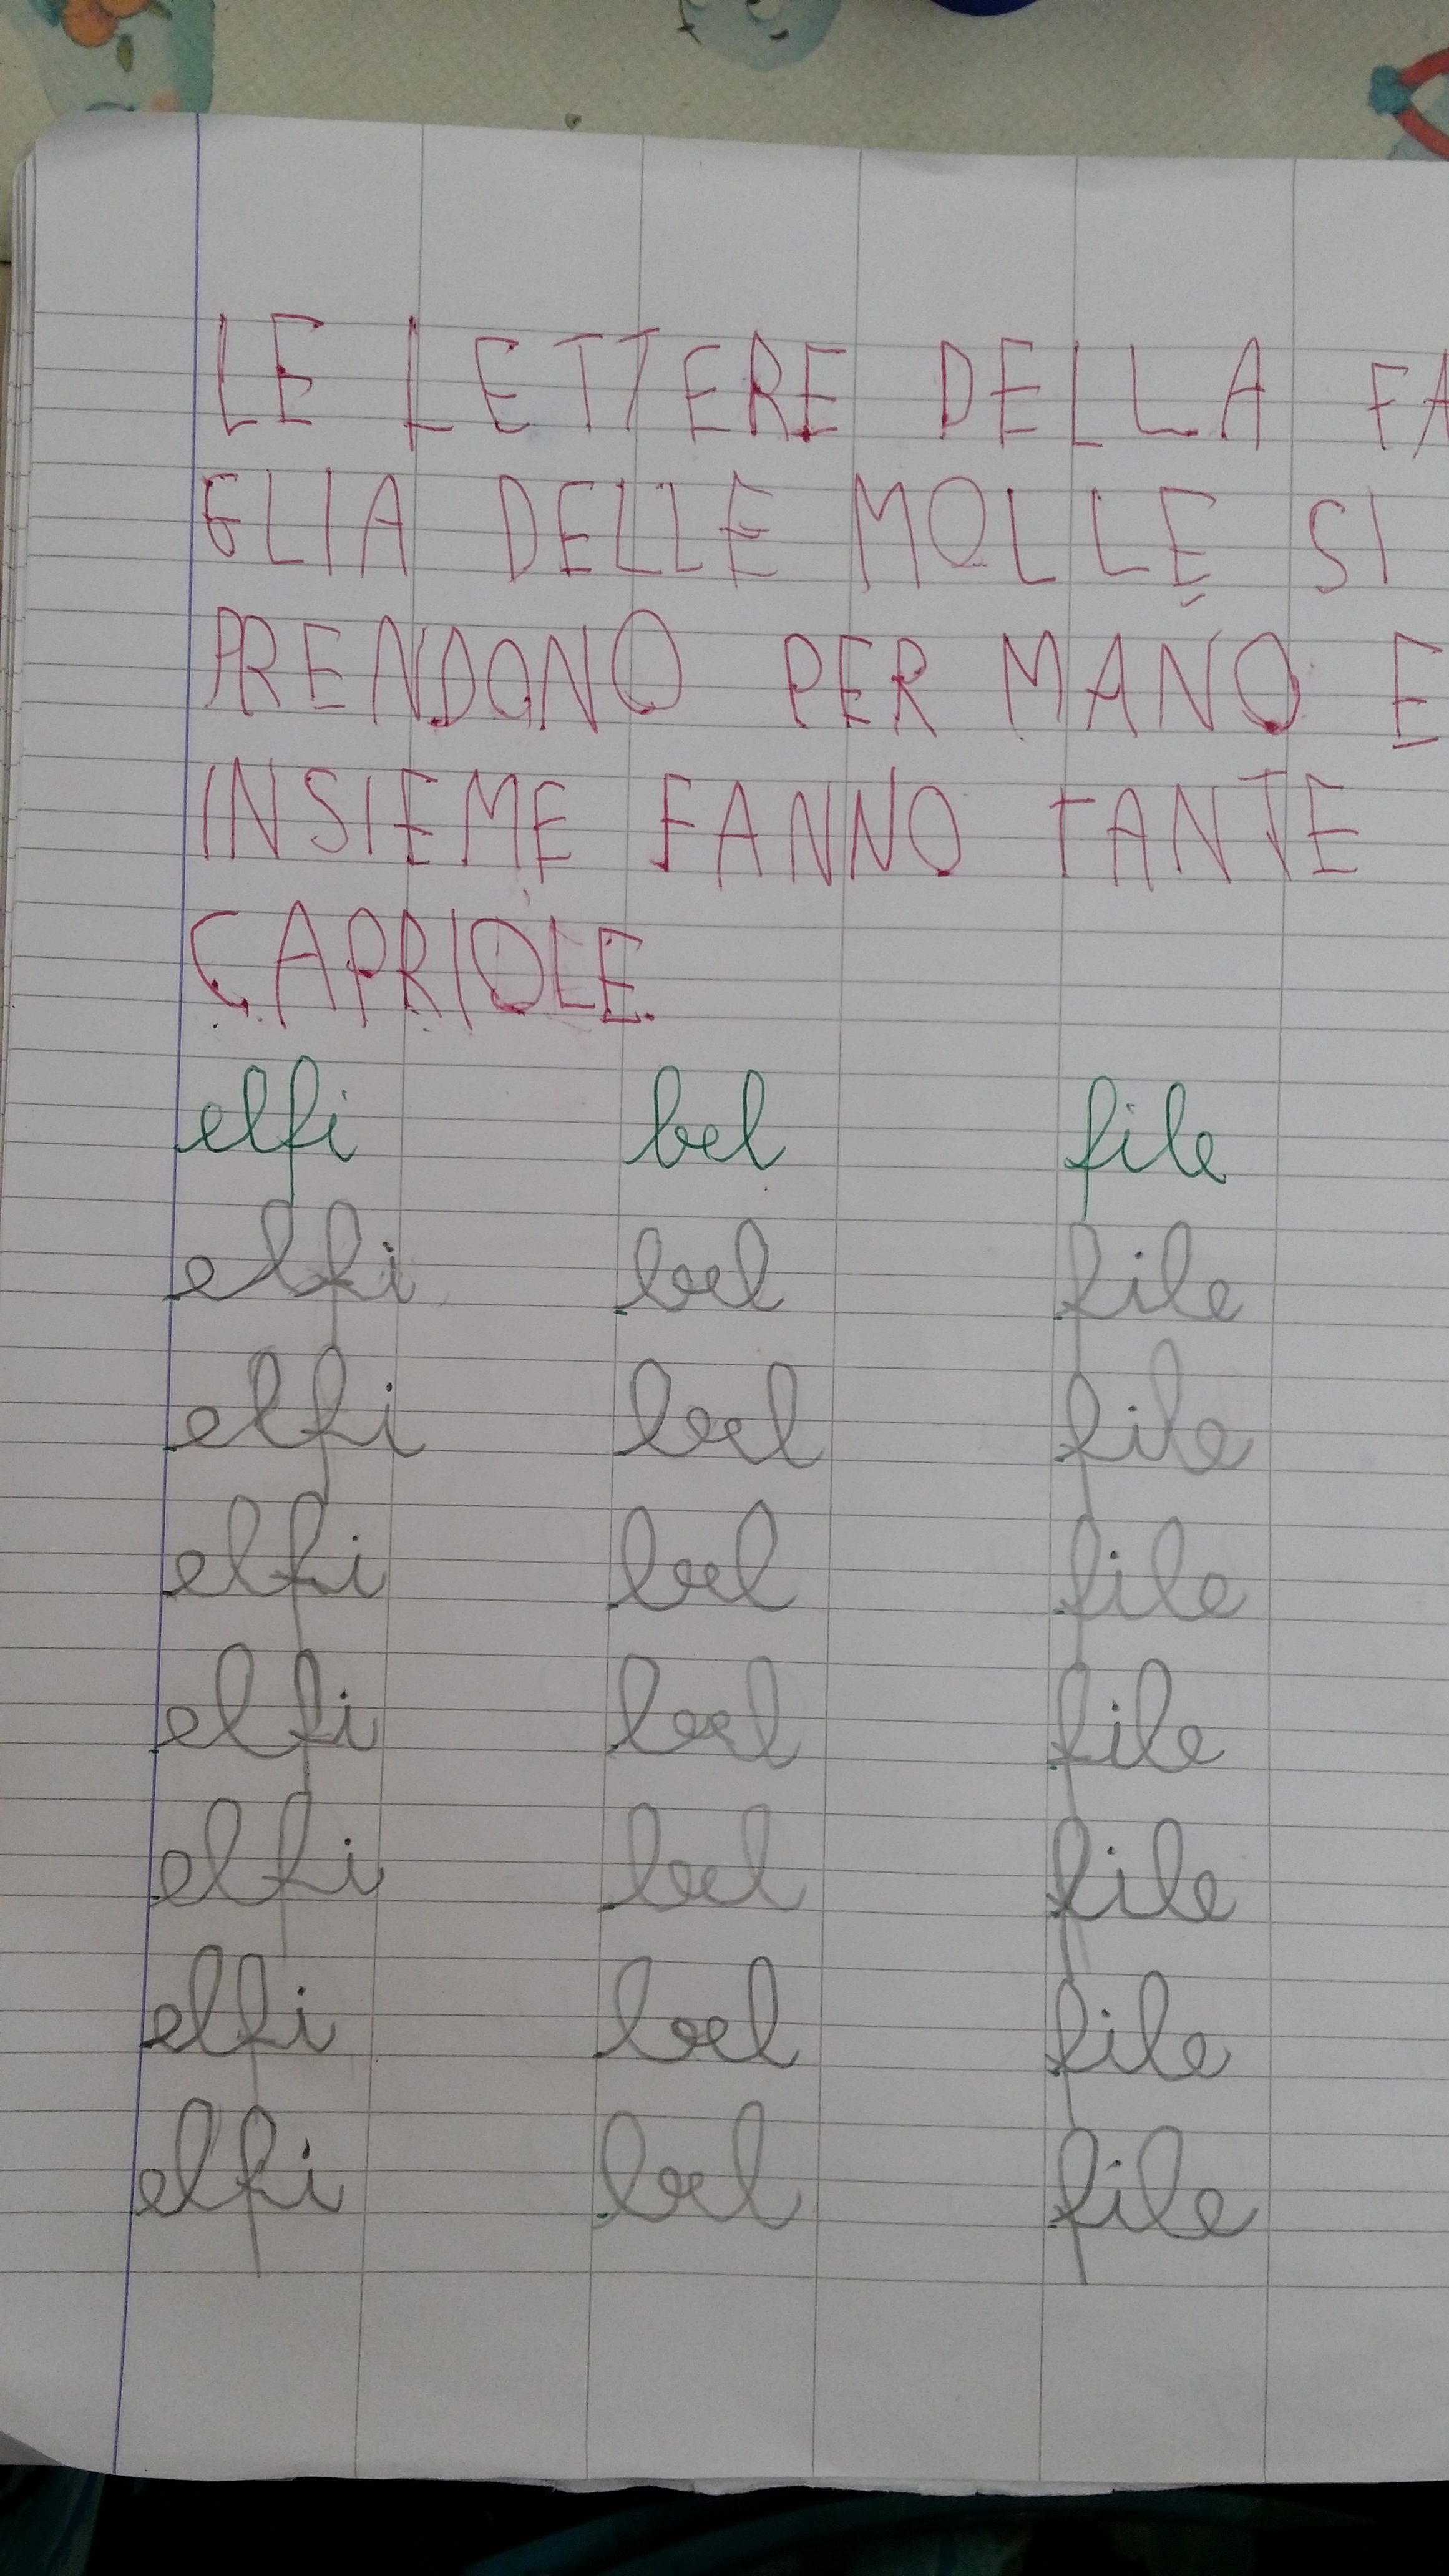 LE LETTERE DELLA FA
GLIA DELLE MOLLE SI
PRENDONO PER MANO E
INSIEME FANNO TANTE
CAPRIOLE.
elfi bel file
elfi bel file
elfi bel file
elfi bel file
elfi bel file
elfi bel file
elfi bel file
elfi bel file